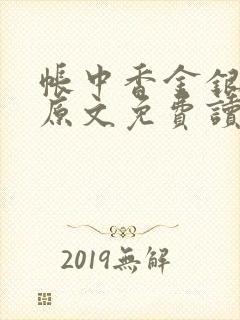 帳中香金銀
原文免費讀
2019無解